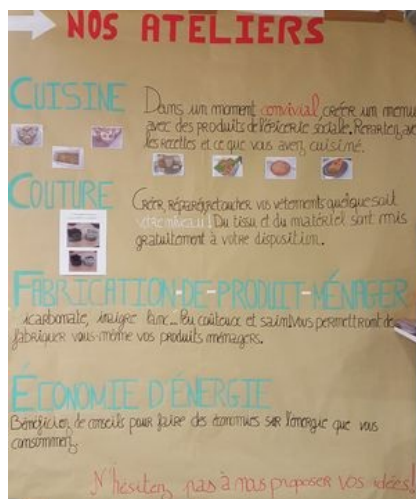 NOS ATELIERS
CUISINE
Dans un moment convivial créer un menu
avec des produits de l'épicerie sociale. Repartez avec
les recettes et ce que vous avez cuisiné.
COUTURE
Créer, réparer, retoucher vos vêtements quelque soit
votre niveau! Du tissu et du matériel sont mis
gratuitement à votre disposition.
FABRICATION-DE-PRODUIT-MÉNAGER
icarbonate, inaigre lanc... Peu coûteux et sains vous permettront de
fabriquer vous-même vos produits ménagers.
ÉCONOMIE D'ÉNERGIE
Bénéficiez de conseils pour faire des économies sur l'énergie que vous
consommez.
N'hésitez pas à nous proposer vos idées!